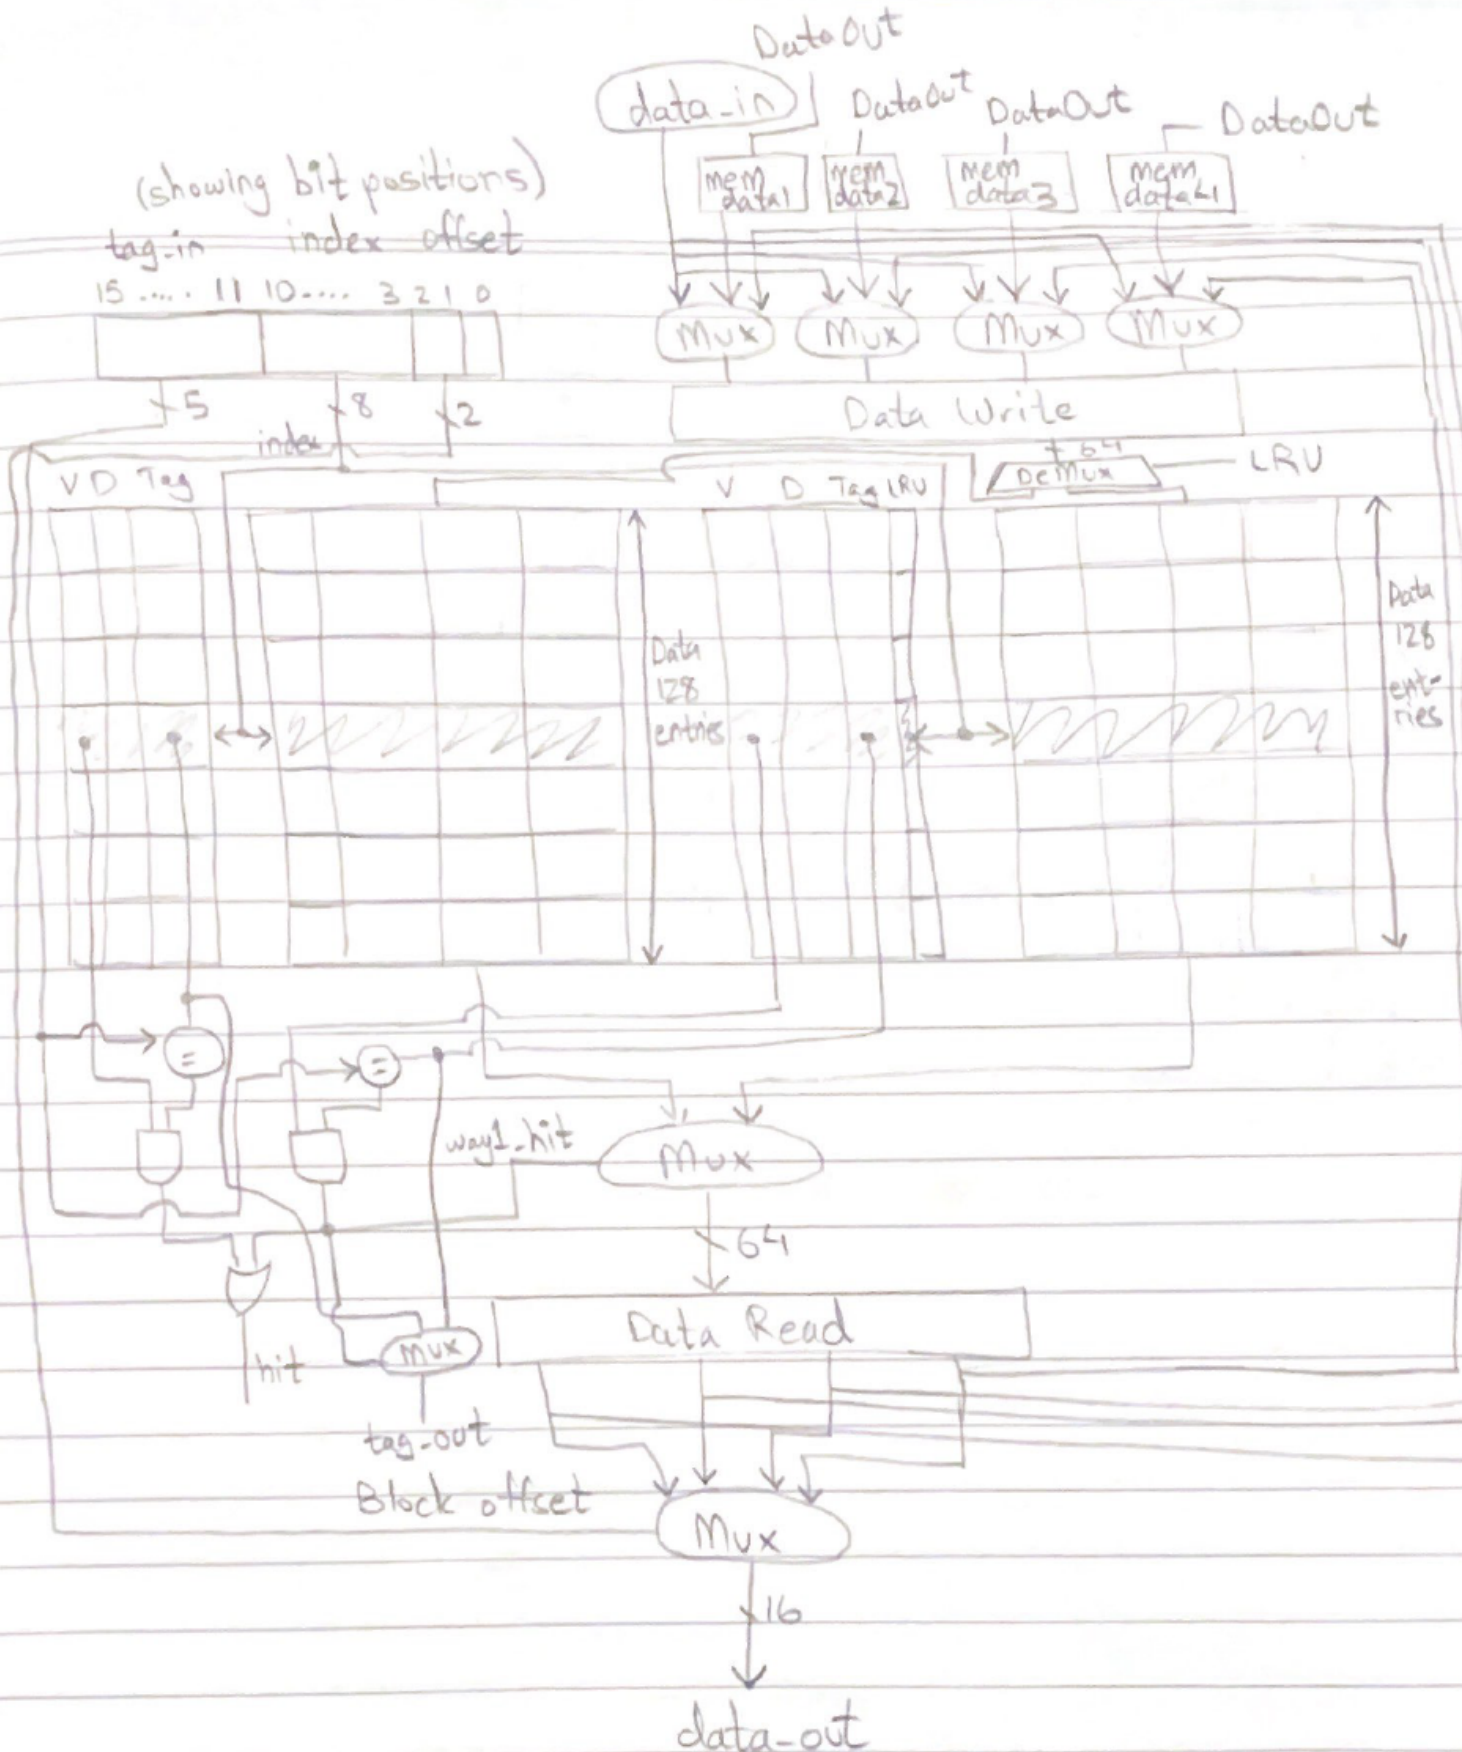 DataOut
data_in
DataOut
DataOut
DataOut
mem data1
mem data2
mem data3
mem data4
(showing bit positions)
tag_in index offset
15 ..... 11 10 .... 3 2 1 0
Mux
Mux
Mux
Mux
5
8
2
index
Data Write
64
DeMux
LRU
V D Tag
V D Tag LRU
Data
128
entries
Data
128
ent-
ries
=
=
way1_hit
Mux
64
Data Read
hit
Mux
tag_out
Block offset
Mux
16
data_out